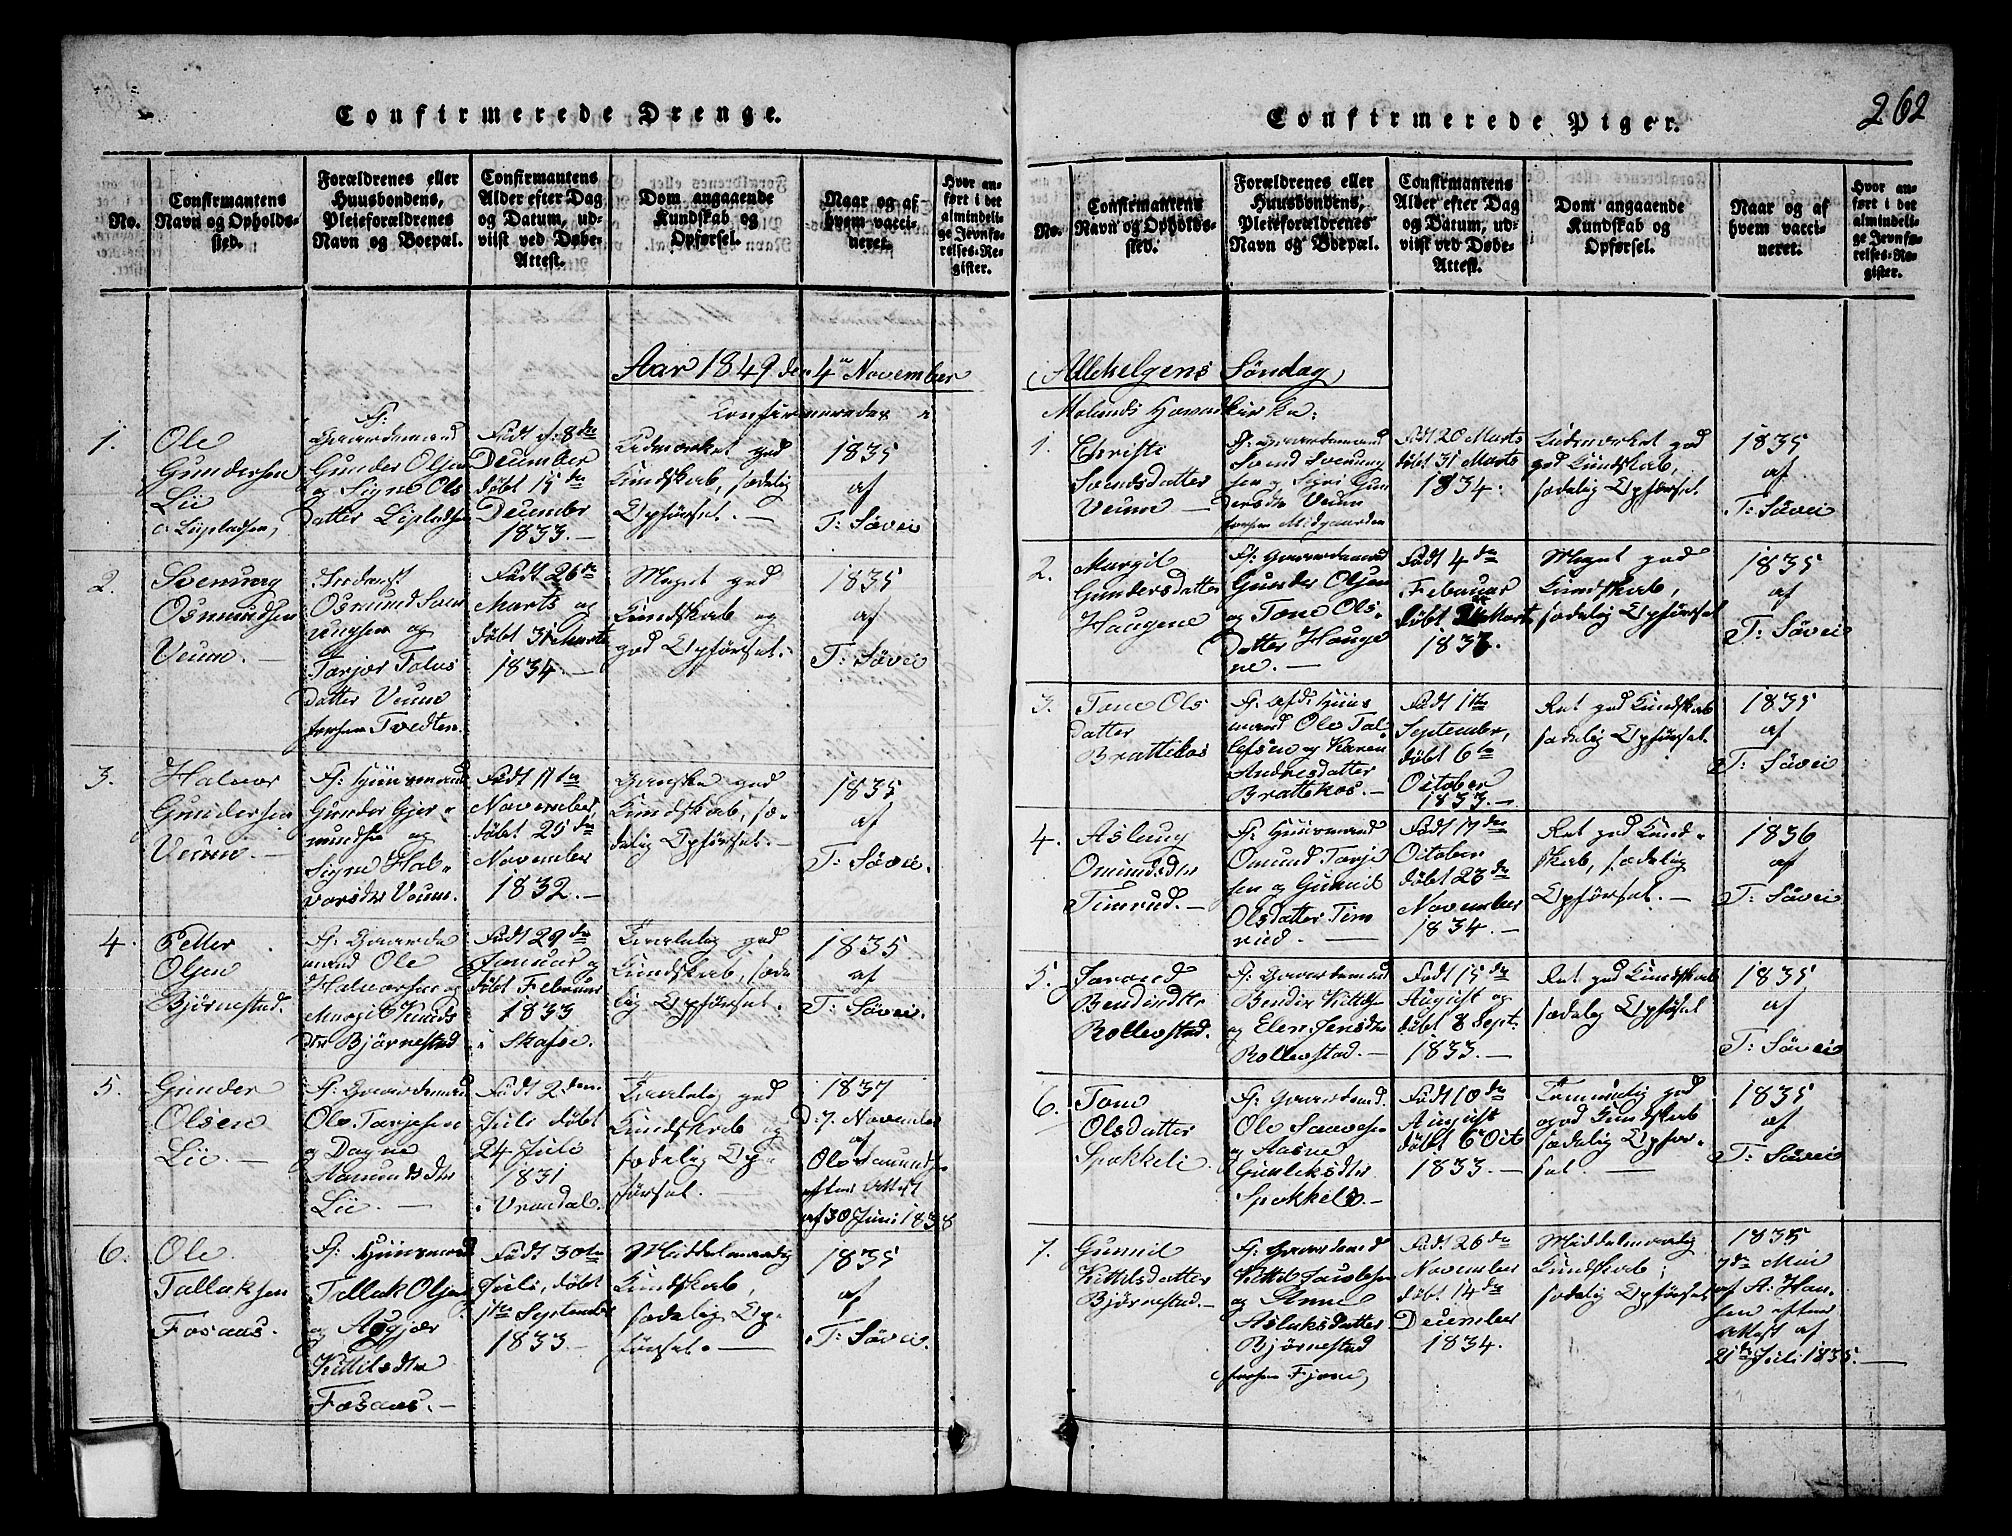 Confirmerede Drenge.
No.
Confirmantens
Navn og Opholds-
sted.
Forældrenes eller
Huusbondens,
Pleieforældrenes
Navn og Boepæl.
Confirmantens
Alder efter Dag
og Datum, ud-
viist ved Døbe-
Attest.
Dom angaaende
Kundskab og
Opførsel.
Naar og af
hvem vacci-
neret.
Hvor an-
ført i det
almindeli-
ge Jevnfø-
relses-Re-
gister.
Aar 1849 den 4de November
Confirmeredes i
1.
Ole
Gundersen
Lie
F:
Gaardemand
Gunder Olsen
og Signe Ols
datter
Født d: 8de
December
døbt 15de
December
1833.
Udmærket god
Kundskab, sædelig
Opførsel. —
1835
af
T: Søvei
2.
Svenung
Osmundsen
Veum. —
Osmund Sven
ungsen og
Tarjer Talus
datter Veum
forhen Tvedten.
Født 26de
Marts og
døbt 31 Marts
1834. —
Meget god
Kundskab og
god Opførsel.
1835
af
T: Søvei
3.
Halvor
Gundersen
Veum. —
F: Huusmand
Gunder Gjer-
mundsen og
Signe Hal-
vorsdtr Veum.
Født 11te
November,
døbt 25de
November
1832. —
Ganske god
Kundskab, sæ-
delig Opførsel. —
1835
af
T: Søvei.
4.
Petter
Olsen
Bjørnestad.
F: Gaarde
mand Ole
Halvorsen og
Margit Knuds
dtr Bjørnestad
Født 29de
Januar og
døbt Februar
1833
i Skafse.
Taalelig god
Kundskab, sæde
lig Opførsel.
1835
af
T: Søvei.
5.
Gunder
Olsen
Lie. —
F: Gaardemand
Ole Tarjesen
og Dagne
Aamundsdtr
Lie. —
Født 2den
Juli døbt
24 Juli
1831
i Vraadal.
Taalelig god
Kundskab og
sædelig Op-
førsel. —
1837
D. 7. November
af
Ole
efter Attest
af 30 Juni 1838
6.
Ole
Tallaksen
Fosaas.
F: Huusmand
Tallak Olsen
og Aagjær
Kittilsdtr
Fosaas. —
Født 30te
Juli, døbt
1te September
1833
Middelmaadig
Kundskab,
sædelig Op-
førsel. —
1835
af
T: Søvei.
262
Confirmerede Piger.
No.
Confirmantens
Navn og Opholds-
sted.
Forældrenes eller
Huusbondens,
Pleieforældrenes
Navn og Boepæl.
Confirmantens
Alder efter Dag
og Datum, ud-
viist ved Døbe-
Attest.
Dom angaaende
Kundskab og
Opførsel.
Naar og af
hvem vacci-
neret.
Hvor an-
ført i det
almindeli-
ge Jevnfø-
relses-Re-
gister.
(Allehelgens Søndag)
Molands Hovedkirke:
1.
Christi
Svendsdatter
Veum —
F: Gaardemand
Svend Svenung
sen og Sigri Gun
dersdtr Veum
forhen Midgaarden
Født 20 Marts
døbt 31 Marts
1834.
Udmærket god
god Kundskab,
sædelig Opførsel
1835
af
T. Søvei
2.
Margit
Gundersdatter
Haugene
F: Gaardemand
Gunder Olsen
og Tone Ols-
datter Hauge
ne. —
Født 4de
Februar
døbt Marts
Meget god
Kundskab,
sædelig Opførsel
1835
af
T: Søvei
3.
Tone Ols
datter
Brattekos
F: afd: Huus
mand Ole Tal-
lefsen og Karen
Andresdatter
Brattekos. —
Født 1te
September,
døbt 6te
October
1833. —
Ret god Kundskab
sædelig Opførsel.
1835
af
T: Søvei
4.
Aslaug
Omundsdtr
Timrud. —
F: Huusmand
Omund Tarje
sen og Gunnil
Olsdatter Tim
rud. —
Født 17de
October
døbt 23de
November
1834. —
Ret god Kund-
skab, sædelig
Opførsel. —
1836
af
T: Søvei
5.
Joraand
Bendixdtr
Rollevstad.
F: Gaardemand
Bendix Kittilsen
og Elen Jensdtr
Rollevstad. —
Født 15de
August og
døbt 8 Sept.
1833. —
Ret god Kundskab
sædelig Opførsel
1835
af
T: Søvei
6.
Tone
Olsdatter
Spokkeli
F: Gaardemand.
Ole Saavesen
og Aasne
Gunleiksdtr
Spokkeli. —
Født 10de
August
døbt 6te Oct
1833. —
Temmelig god
og god Kundskab
sædelig Opfør-
sel —
1835
af
T: Søvei
7.
Gunnil
Kittilsdatter
Bjørnestad. —
F: Gaardemand
Kittil Jacobsen
og Anne
Aslaksdatter
Bjørnestad
forhen Fjone,
Født 26de
November
døbt 14de
December
1834.
Middelmaadig
Kundskab;
sædelig Opførsel
1835
7de Mai
af A: Han-
sen efter
Attest af
21de Juli 1835. —